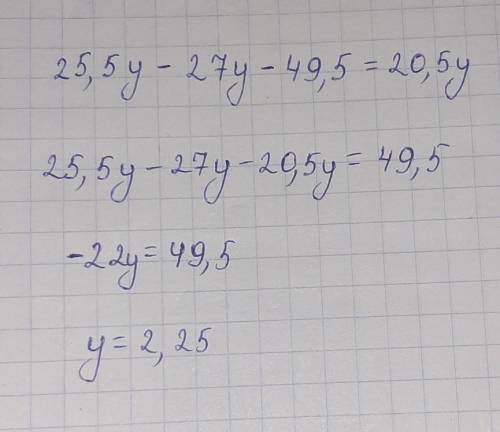 25,5y - 27y - 49,5 = 20,5y
25,5y - 27y - 20,5y = 49,5
-22y = 49,5
y = 2,25